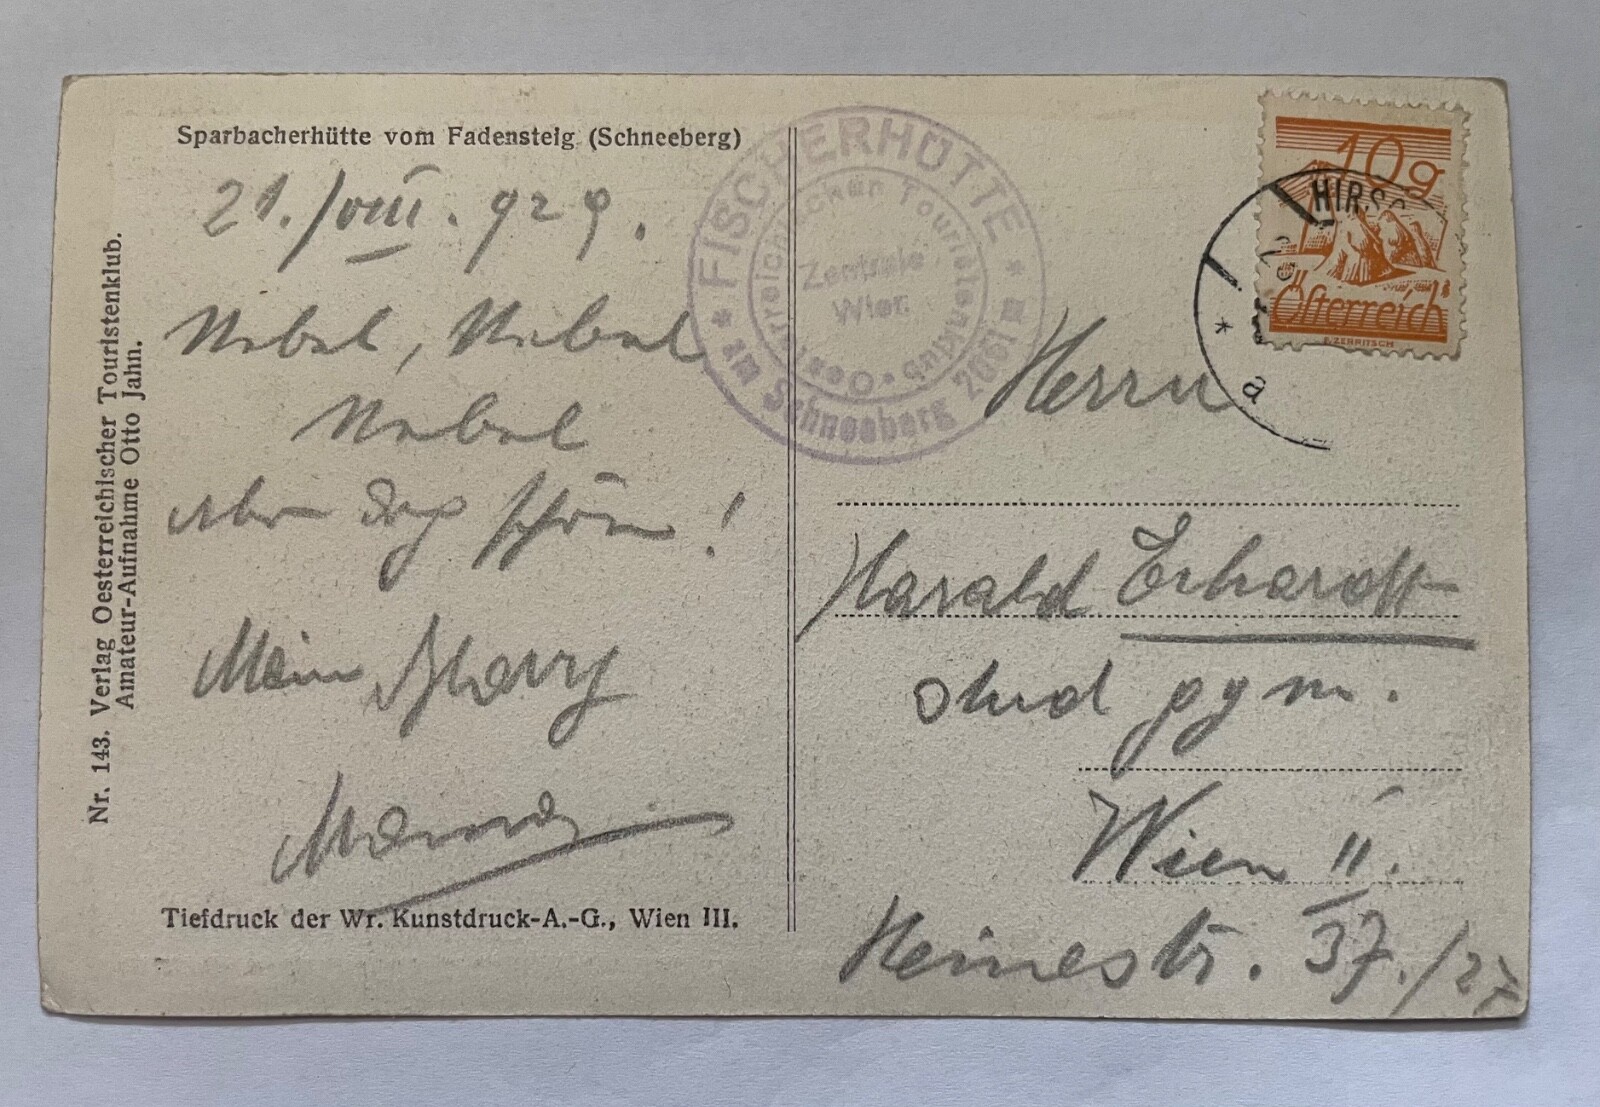 Sparbacherhütte vom Fadensteig (Schneeberg)
21./VIII. 929.
Nebel, Nebel
Nebel
aber doch schön!
Mein
Tiefdruck der Wr. Kunstdruck-A.-G., Wien III.
Nr. 143. Verlag Oesterreichischer Touristenklub.
Amateur-Aufnahme Otto Jahn.
FISCHERHÜTTE
Oesterreichischer Touristenklub
Zentrale
Wien
am Schneeberg 2061 m
10g
Österreich
F. ZERRITSCH
HIRSC
a
Herrn
Harald Erhardt
stud gym.
Wien II.
Heinestr. 37./27